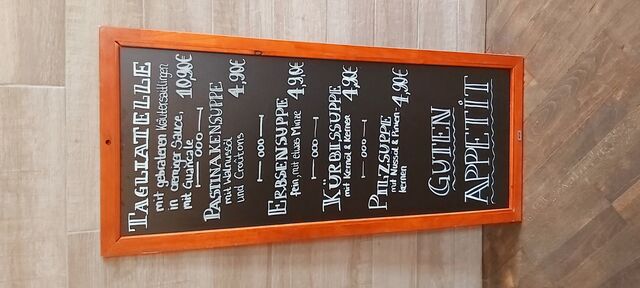 TAGLIATELLE
mit gebratenen Kräutersaitlingen
in cremiger Sauce,
mit Guanciale 10,90€
PASTINAKENSUPPE
mit Walnussöl
und Croûtons 4,90€
ERBSENSUPPE
fein, mit etwas Minze 4,90€
KÜRBISSUPPE
mit Kernöl & Kernen 4,90€
PILZSUPPE
mit Nussöl & Pinien-
kernen 4,90€
GUTEN
APPETIT